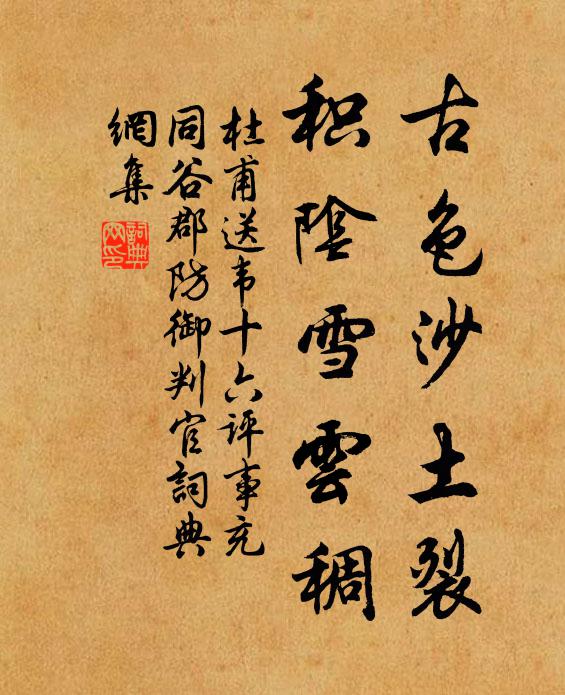 古色沙土裂
积陰雪雲稠
杜甫送韦十六评事充
同谷郡防御判官詞典
網集
詞典
网印